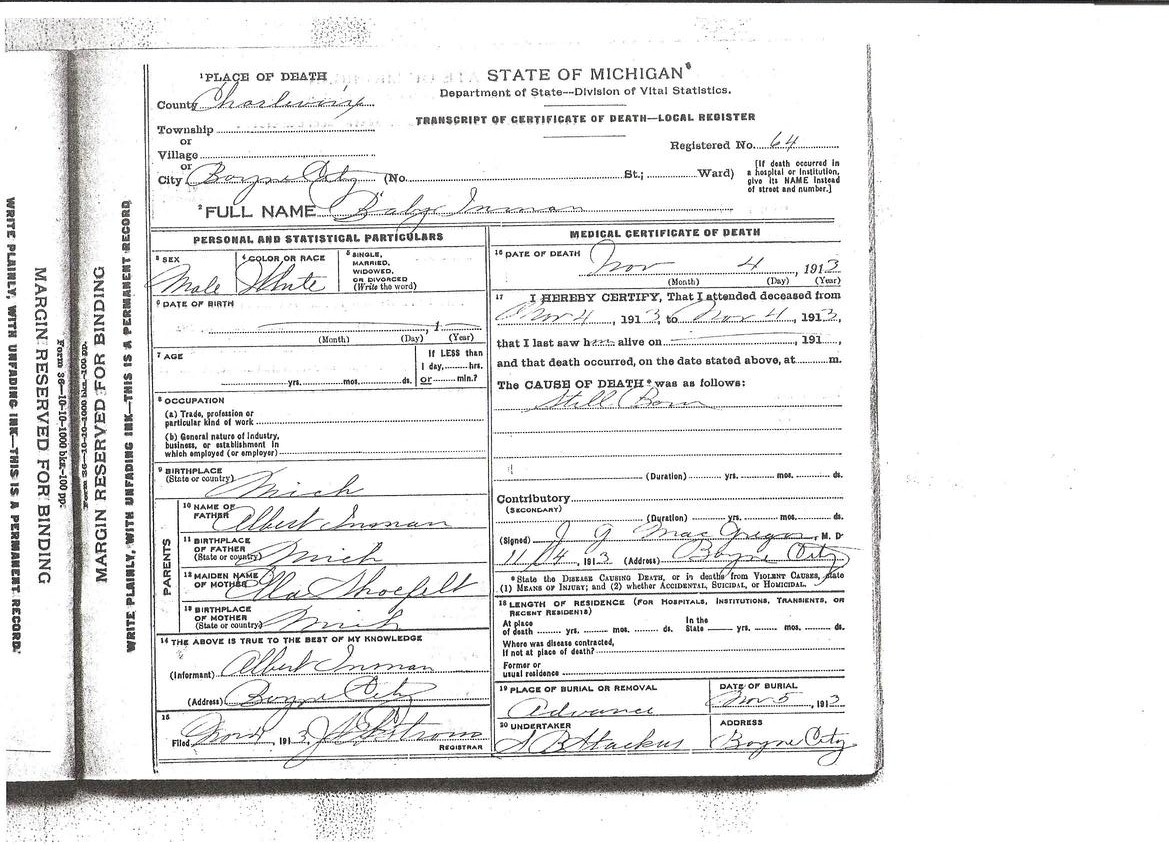 WRITE PLAINLY, WITH UNFADING INK—THIS IS A PERMANENT RECORD.
MARGIN RESERVED FOR BINDING
Form 36—10-10-1000 bks—100 pp.
Form 36—10-10-1000 bks-100 pp.
MARGIN RESERVED FOR BINDING
WRITE PLAINLY, WITH UNFADING INK—THIS IS A PERMANENT RECORD
1 PLACE OF DEATH
County Charlevoix
Township
or
Village
or
City Boyne City (No. St.; Ward)
STATE OF MICHIGAN
Department of State—Division of Vital Statistics.
TRANSCRIPT OF CERTIFICATE OF DEATH—LOCAL REGISTER
Registered No. 64
[If death occurred in
a hospital or institution,
give its NAME instead
of street and number.]
2 FULL NAME Baby Inman
PERSONAL AND STATISTICAL PARTICULARS
3 SEX
Male
4 COLOR OR RACE
White
5 SINGLE,
MARRIED,
WIDOWED,
OR DIVORCED
(Write the word)
6 DATE OF BIRTH
, 1
(Month) (Day) (Year)
7 AGE
yrs. mos. ds.
If LESS than
1 day, hrs.
or min.?
8 OCCUPATION
(a) Trade, profession or
particular kind of work
(b) General nature of industry,
business, or establishment in
which employed (or employer)
9 BIRTHPLACE
(State or country)
Mich
PARENTS
10 NAME OF
FATHER
Albert Inman
11 BIRTHPLACE
OF FATHER
(State or country)
Mich
12 MAIDEN NAME
OF MOTHER
Ella Shoefelt
13 BIRTHPLACE
OF MOTHER
(State or country)
Mich
14 THE ABOVE IS TRUE TO THE BEST OF MY KNOWLEDGE
(Informant) Albert Inman
(Address) Boyne City
15
Filed 191 3
REGISTRAR
MEDICAL CERTIFICATE OF DEATH
16 DATE OF DEATH
Nov 4 , 1913
(Month) (Day) (Year)
17 I HEREBY CERTIFY, That I attended deceased from
Nov 4 , 191 3, to Nov 4 , 1913,
that I last saw h alive on , 191 ,
and that death occurred, on the date stated above, at m.
The CAUSE OF DEATH* was as follows:
Still Born
(Duration) yrs. mos. ds.
Contributory
(SECONDARY)
(Duration) yrs. mos. ds.
(Signed) J G MacGregor, M. D
11/4, 191 3 (Address) Boyne City
*State the DISEASE CAUSING DEATH, or in deaths from VIOLENT CAUSES, state
(1) MEANS OF INJURY; and (2) whether ACCIDENTAL, SUICIDAL, or HOMICIDAL.
18 LENGTH OF RESIDENCE (FOR HOSPITALS, INSTITUTIONS, TRANSIENTS, OR
RECENT RESIDENTS)
At place
of death yrs. mos. ds.
In the
State yrs. mos. ds.
Where was disease contracted,
If not at place of death?
Former or
usual residence
19 PLACE OF BURIAL OR REMOVAL
Advance
DATE OF BURIAL
Nov 5 , 1913
20 UNDERTAKER
S B Stackus
ADDRESS
Boyne City